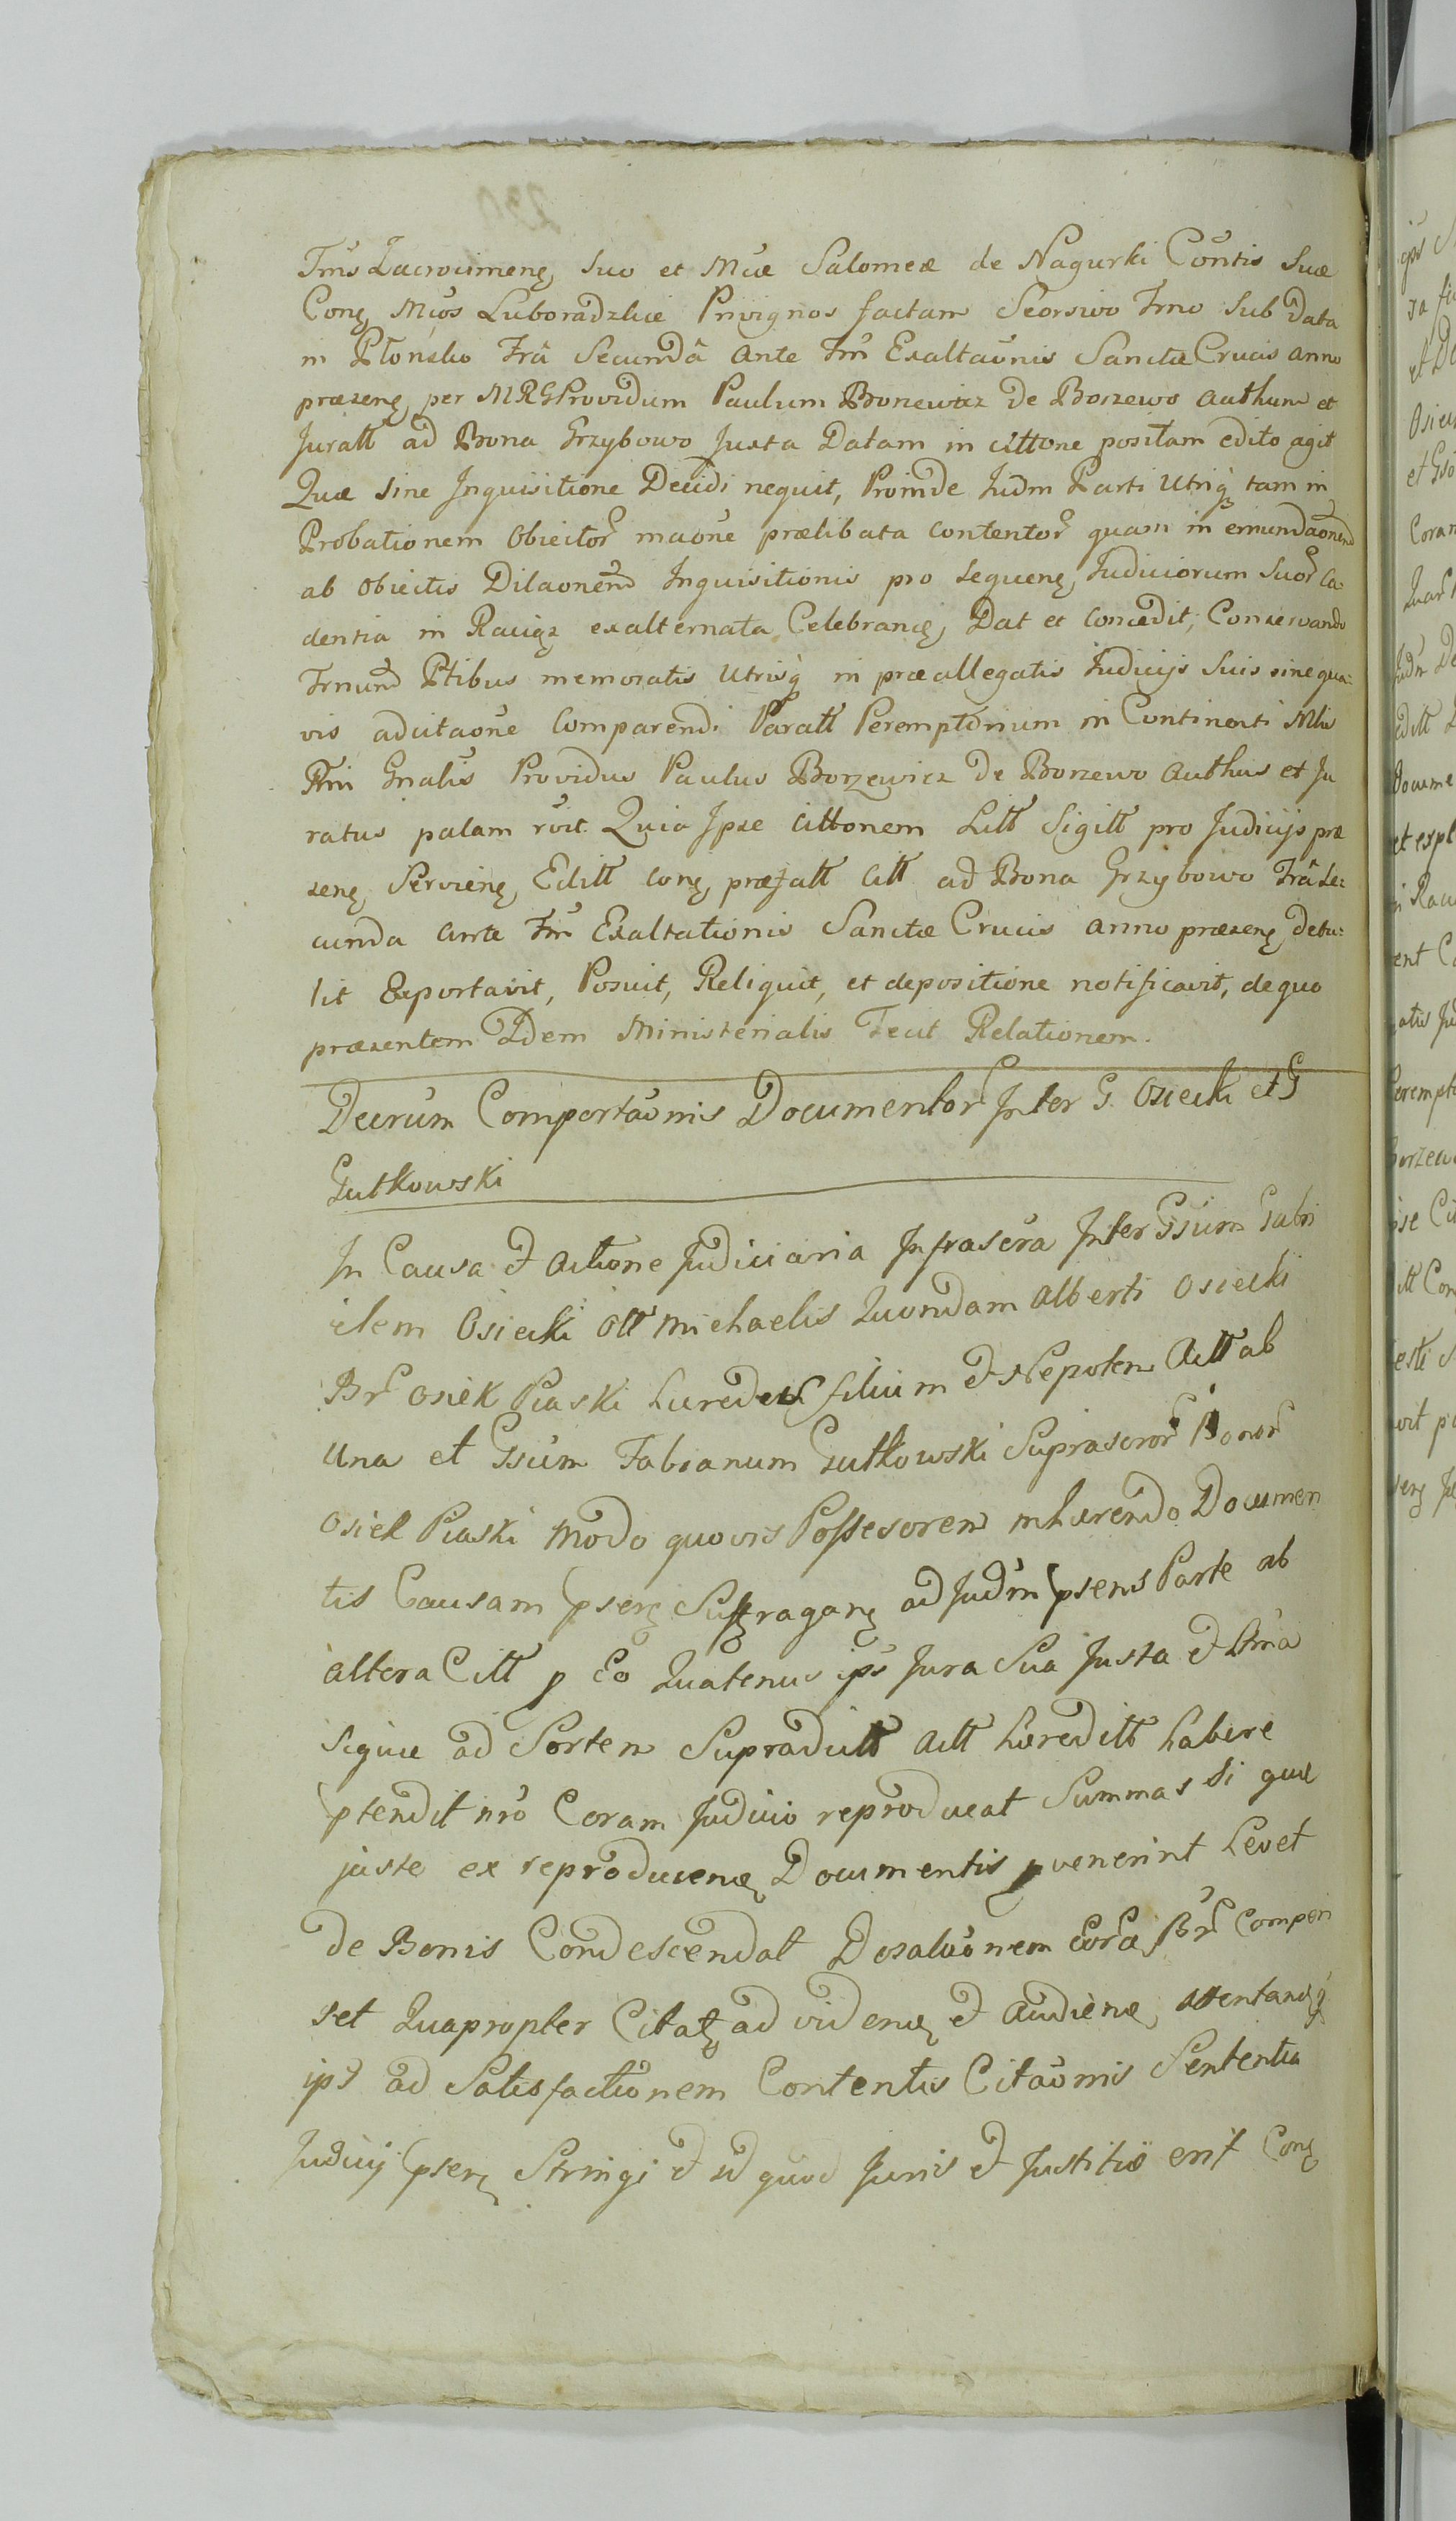 Suo et Mcæ Salomeæ de Nagurki Contis Suæ
Mcos Luboradzkie Privignos factam Seorsivo Trno Sub Data
in Płońsko Frâ Secundâ Ante Fm Exaltaonis Sanctæ Crucis anno
præsenę per MRGProvidum Paulum Borzewicz de Borzewo Authum et
Juratt ad Bona Grzybowo Juxta Datam in Cittone positam edito agit
Quæ sine Inquisitione Decidi nequit, Proinde Judm Parti Utriq tam in
Probationem Obiector maone prælibata contentor quam in emundaonem
ab obiectis Dilaonem Inquisitionis pro sequenę Judiciorum Suor Ca
dentia in Raciąz exalternata Celebrancę Dat et concedit; Conservando
Trnum Ptibus memoratis Utrisq in præallegatis Judicijs Suis sine qua-
vis adcitaone Comparendi Paratt Peremptorium in Continenti Mlis
Rni Gnalis Providus Paulus Borzewicz de Borzewo Authus et Ju
ratus palam rvit Quia Ipse Cittonem Litt Sigitt pro Judicijs præ
senę Servienę Editt præfatt Citt ad Bona Grzybowo Frâ Se-
cunda Ante Fm Exaltationis Sanctæ Crucis anno præsenę detu-
lit Exportavit, Posuit, Reliquit, et depositione notificavit, de quo
præsentem Idem Ministerialis Fecit Relationem.
Decrum Comportaonis Documentor Inter G. Osiecki et G
Gutkowski
In Causa et Actione Judiciaria Infrascra Inter Gsum Gabri
elem Osiecki Olt Michaelis Quondam Alberti Osiecki
Br Osiek Piaski filium et Nepotem Actt ab
Una et Gsum Fabianum Gutkowski Suprascror Bonor
Osiek Piaski Modo quovis Possesorem inhærendo Documen
tis Causam psenę Suffraganę ad Judm psens Parte ab
altera Citt p Eo Quatenus ips Jura Sua Justa et
siquæ ad Sortem Supradictt Actt hæreditt habere
ptendit nro Coram Judicio reproducat Summas Si quæ
juste ex reproducenę Documentis pvenerint Levet
de Bonis Condescendat Desolaonem Br Compen
set Quapropter ad videnę et Audienę attentanęq
ips ad Satisfactionem Contentis Citaonis Sententia
Judicij psenę Stringi et id quod Juris et Justitiæ erit